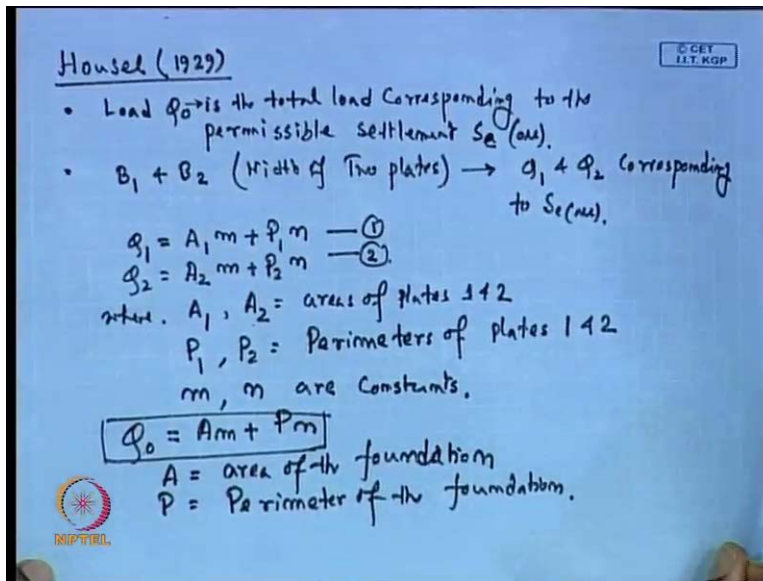 Housel (1929)
© CET
I.I.T. KGP
• Load Q0 → is the total load Corresponding to the
permissible settlement Se (all).
• B1 & B2 (Width of Two plates) → Q1 & Q2 Corresponding
to Se(all).
Q1 = A1 m + P1 n — ①
Q2 = A2 m + P2 n — ②.
where. A1, A2 = areas of plates 1 & 2
P1, P2 = Perimeters of plates 1 & 2
m, n are Constants.
Q0 = Am + Pn
A = area of the foundation
P = Perimeter of the foundation.
NPTEL